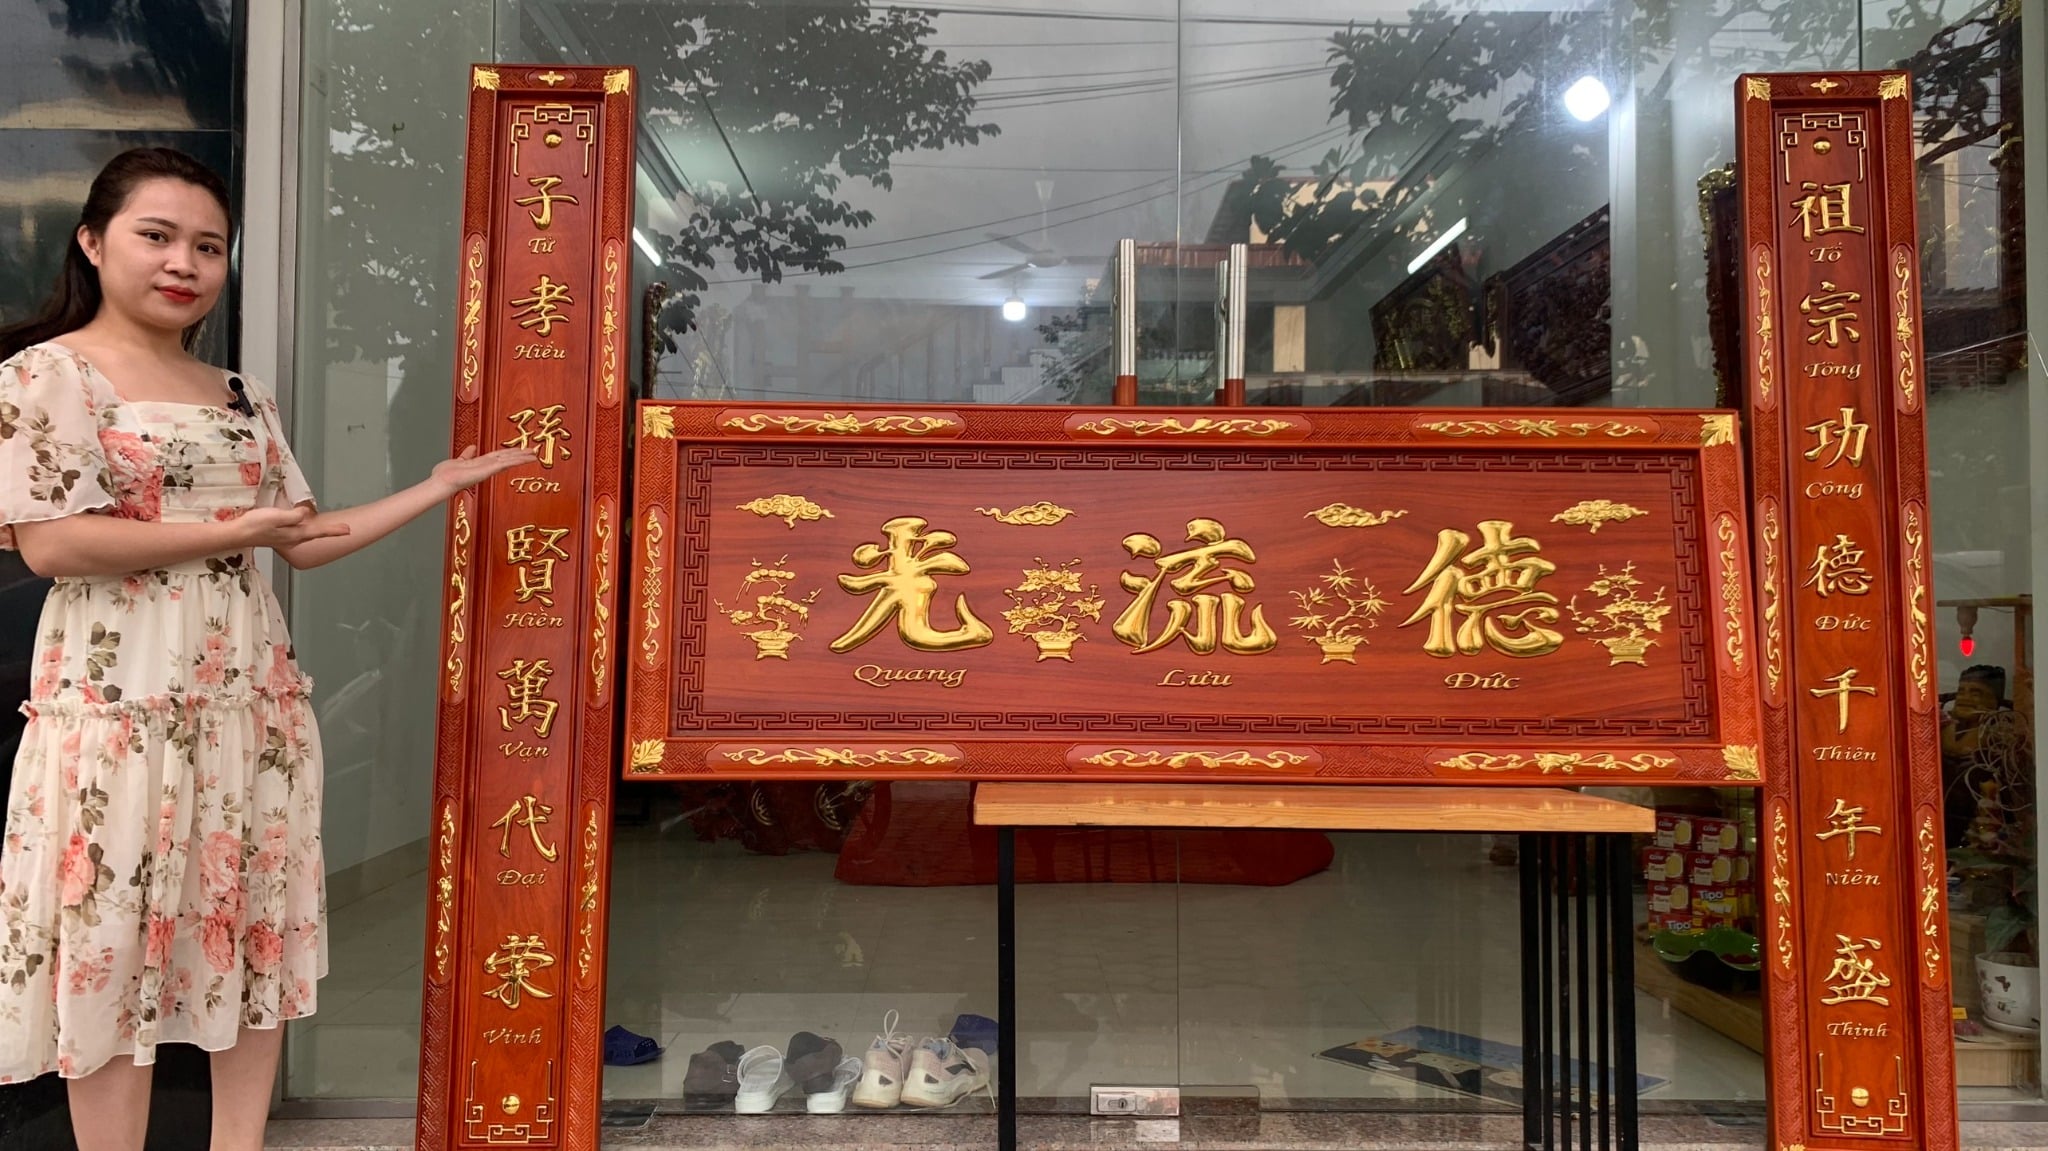 祖
Tổ
宗
Tông
功
Công
德
Đức
千
Thiên
年
Niên
盛
Thịnh
德 流 光
Quang Lưu Đức
子
Tử
孝
Hiếu
孫
Tôn
賢
Hiền
萬
Vạn
代
Đại
榮
Vinh
Tipo
Tipo